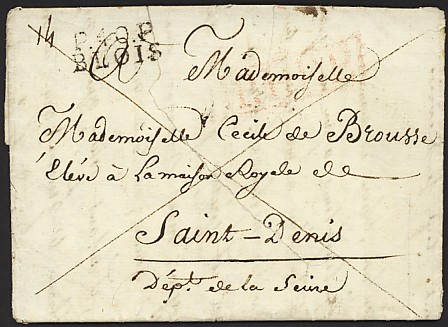 P.40.P
BLOIS
Mademoiselle
Mademoiselle Cecile de Brousse
Elevé à La maison Royale de
Saint-Denis
Dépt. de la Seine